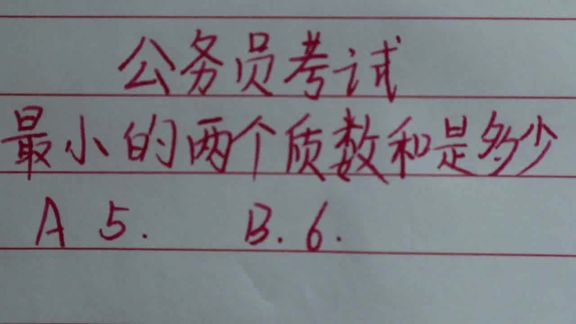 公务员考试
最小的两个质数和是多少
A 5. B. 6.